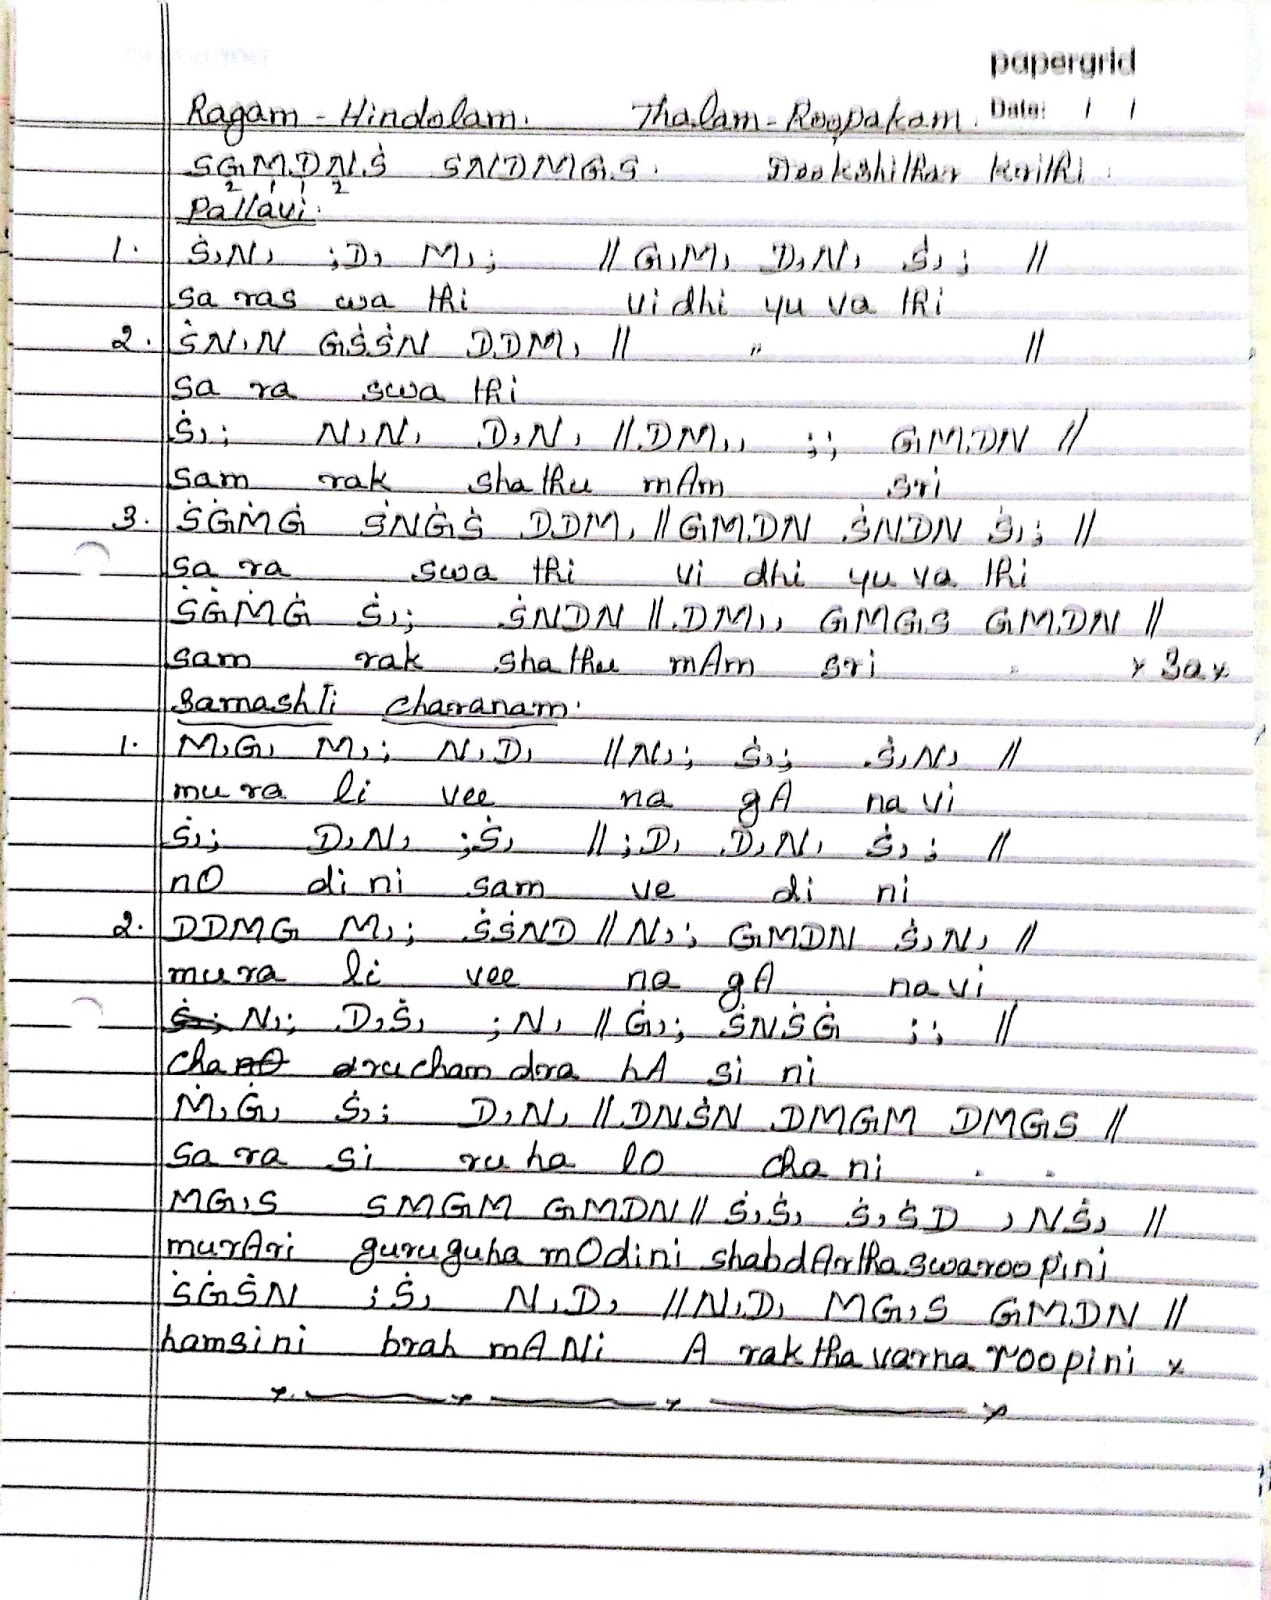 papergrid
Ragam - Hindolam. Thalam - Roopakam. Date: / /
S G₂ M₁ D₁ N₂ Ṡ ṠNDMGS. Deekshithar krithi.
Pallavi.
1. Ṡ,N, ;D, M,; // G,M, D,N, Ṡ,; //
sa ras wa thi vi dhi yu va thi
2. ṠN,N GṠṠN DDM, // " //
sa ra swa thi
Ṡ,; N,N, D,N, // DM,, ;; GMDN //
sam rak sha thu mAm sri
3. ṠĠṀĠ ṠNĠṠ DDM, // GMDN ṠNDN Ṡ,; //
sa ra swa thi vi dhi yu va thi
ṠĠṀĠ Ṡ,; ṠNDN // DM,, GMGS GMDN //
sam rak sha thu mAm sri . x Sa x
Samashti charanam.
1. M,G, M,; N,D, // N,; Ṡ,; Ṡ,N, //
mu ra li vee na gA na vi
Ṡ,; D,N, ;Ṡ, // ;D, D,N, Ṡ,; //
nO di ni sam ve di ni
2. DDMG M,; ṠṠND // N,; GMDN Ṡ,N, //
mu ra li vee na gA na vi
N,; D,Ṡ, ;N, // Ġ,; ṠNṠĠ ;; //
cha dru cham dra hA si ni
Ṁ,Ġ, Ṡ,; D,N, // DNṠN DMGM DMGS //
sa ra si ru ha lO cha ni . .
MG,S SMGM GMDN // Ṡ,Ṡ, Ṡ,ṠD ,NṠ, //
murAri guruguha mOdini shabdArtha swaroopini
ṠĠṠN ;Ṡ, N,D, // N,D, MG,S GMDN //
hamsini brah mANi A raktha varna roopini x